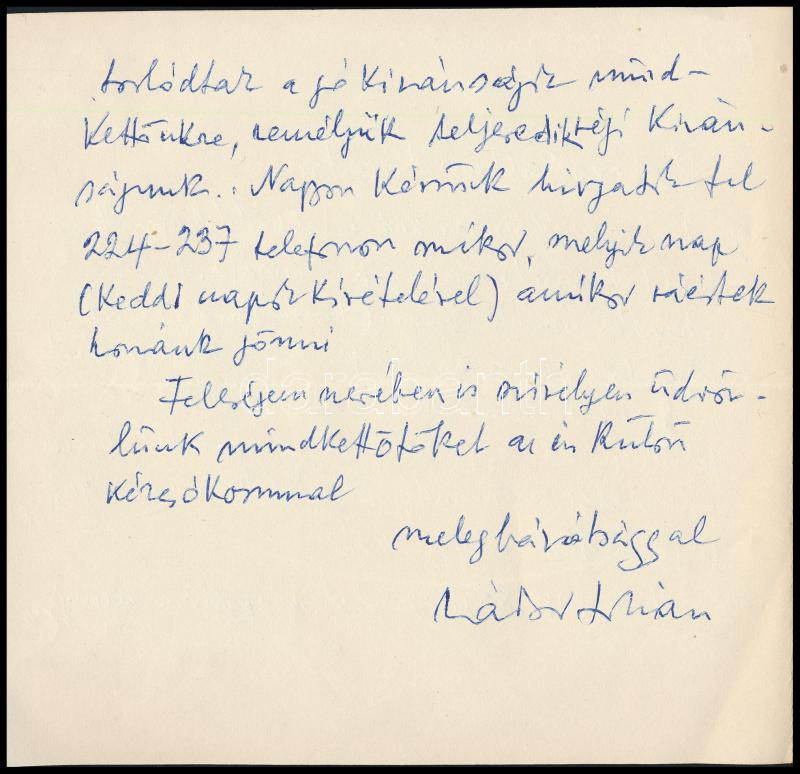 torlódtak a jó kivánságik mind-
kettőnkre, reméljük teljesedik régi kiván-
ságunk. Nagyon kérünk hivjatok fel
224-237 telefonon mikor, melyik nap
(keddi napok kivételével) amikor ráértek
hozánk jönni
Feleségem nevében is szivélyen üdvöz-
lünk mindkettőtöket az én külön
kézcsókommal
meleg barátsággal
darabanth